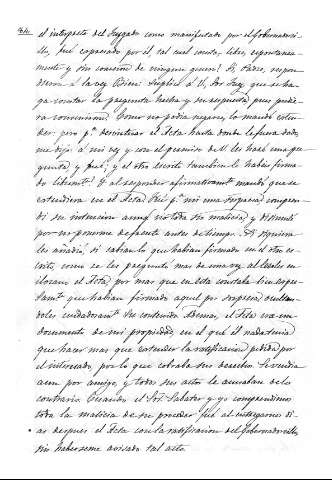 el interprete del Juzgado como manifestado por el Gobernadorci-
llo, fué expresado por él, tal cual consta, libre, espontanea-
mente y sin coaccion de ningun género? Si, Padre, respon-
dieron á la vez. Bien: Suplico á V. Sor. Juez, que se ha-
ga constar la pregunta hecha y su respuesta, pues pudie-
ra convenirme. Como no podia negarse, lo mandó exten-
der; pero pª desvirtuar el Acta hasta donde le fuera dado,
me dijo: á mi vez y con el permiso de V. les haré una pre-
gunta
y el otro escrito tambien lo habeis firma-
do libremte? Y al responder afirmativamte mandó que se
extendiera en el Acta.
di su intencion aunq. vestida sin malicia, y disimulé
por no ponerme de frente antes de tiempo. Si siquiera
les añadió, si sabian lo que habian firmado en el otro es-
crito, como se les preguntó mas de una vez al
el Acta, por mas que en esta constaba
que habian firmado aquel por sorpresa
doles cuidadosamte su contenido. Ademas, el Acta era un
documento de mi propiedad, en el que él nada tenia
que hacer mas que extender la ratificacion pedida por
el interesado, por lo que cobraba sus derechos. Se vendia
aun por amigo, y todos sus actos le acusaban de lo
contrario. Cuando el Sor. Sabater y yo comprendimos
toda la malicia de su proceder fué al entregarnos di-
as despues el Acta con la ratificacion del Gobernadorcillo,
sin haberseme avisado tal acto.